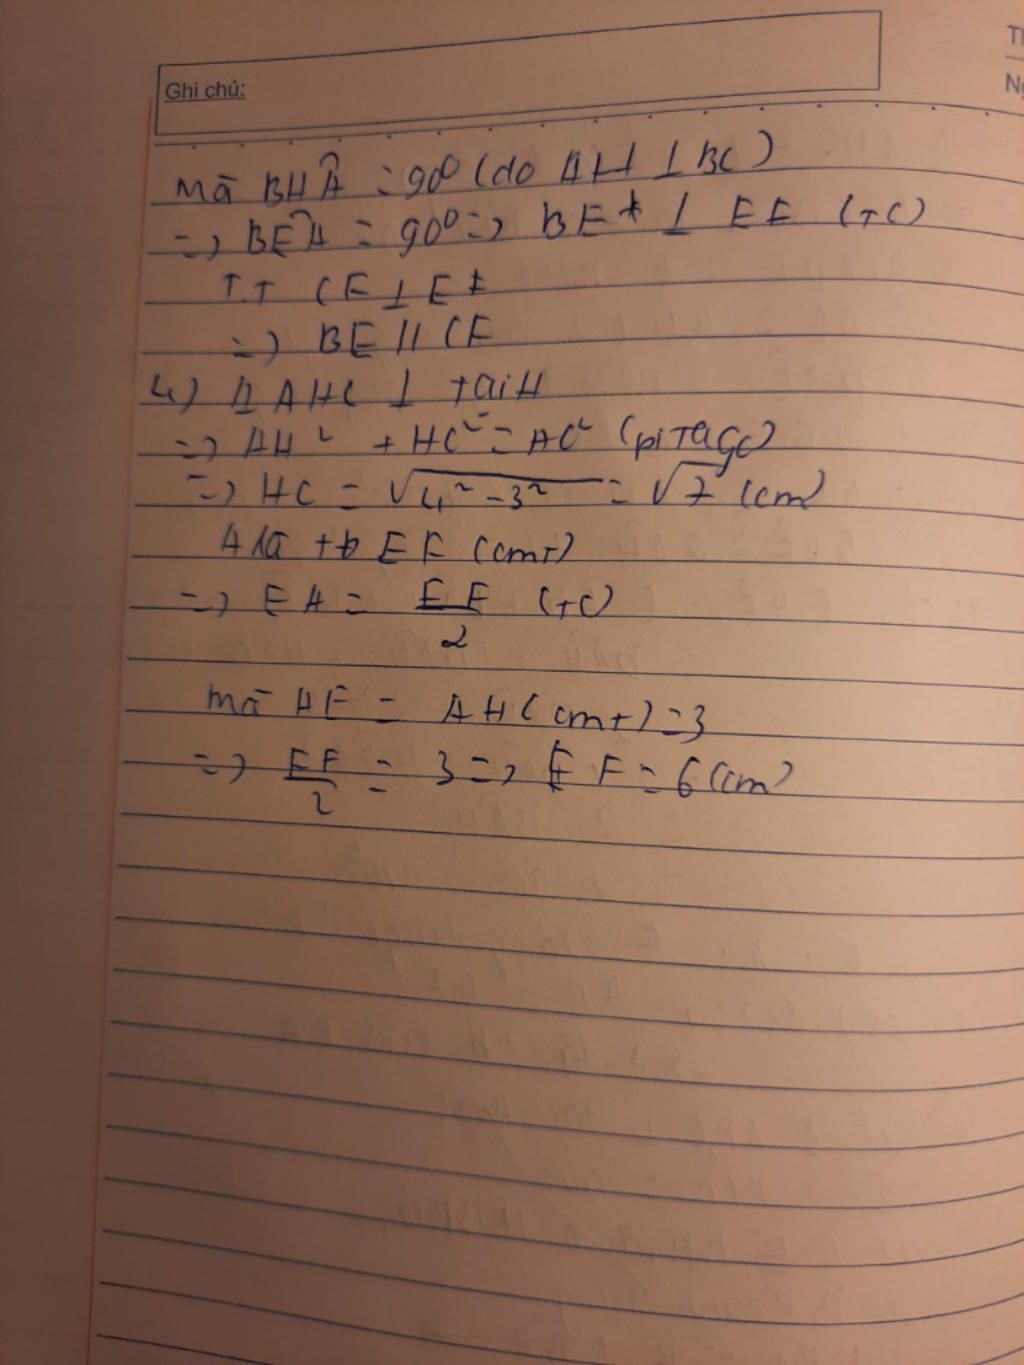 Ghi chú:
Th
Ng
Mà BHA = 90⁰ (do AH ⊥ BC)
=> BEA = 90⁰ => BE ⊥ EF (TC)
T.T CF ⊥ EF
=> BE // CF
4) Δ AHC ⊥ tại H
=> AH² + HC² = AC² (pitago)
=> HC = √4² - 3² = √7 (cm)
A là tđ EF (cmt)
=> EA = EF/2 (TC)
Mà AE = AH (cmt) = 3
=> EF/2 = 3 => EF = 6 (cm)